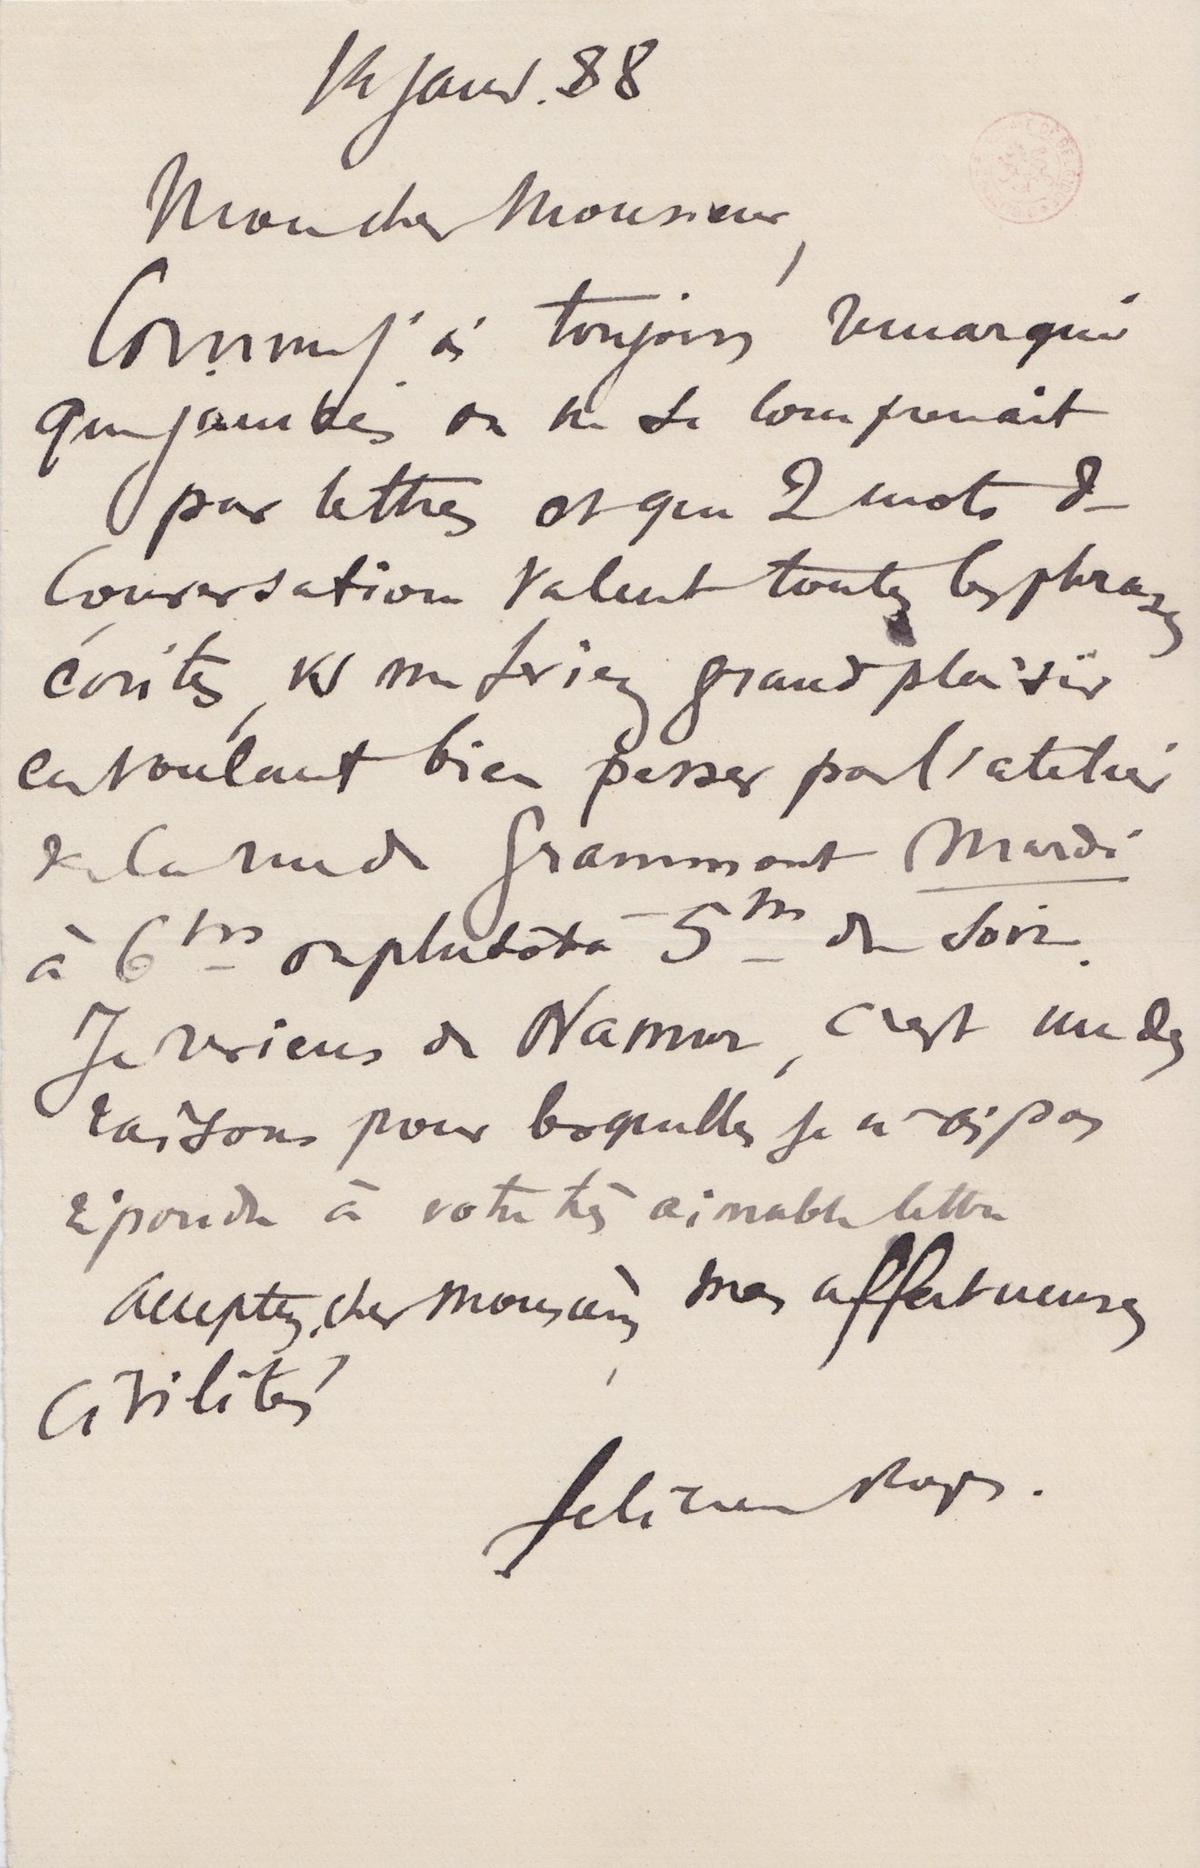 14 Janv. 88
Mon cher Monsieur,
Comme j'ai toujours remarqué
que jamais on ne se comprenait
par lettres et que 2 mots de
conversation valent toutes les phrases
écrites, vs me feriez grand plaisir
en voulant bien passer par l'atelier
de la rue de Grammont Mardi
à 6 hrs ou plutôt à 5 hrs du soir.
Je reviens de Namur, c'est une des
raisons pour lesquelles je n'ai pas
répondu à votre très aimable lettre
Acceptez, cher monsieur, mes affectueuses
civilités
Félicien Rops.